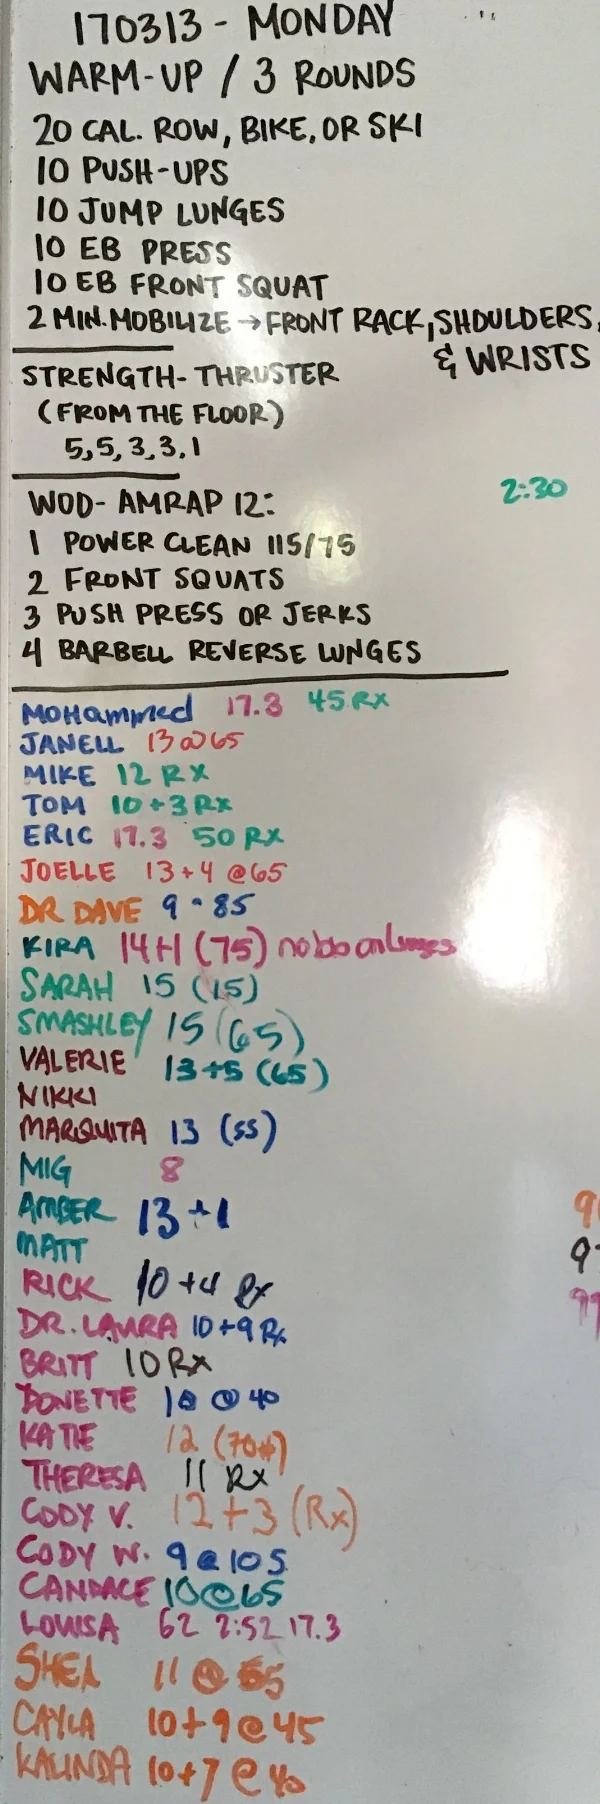 170313 - MONDAY
WARM-UP / 3 ROUNDS
20 CAL. ROW, BIKE, OR SKI
10 PUSH-UPS
10 JUMP LUNGES
10 EB PRESS
10 EB FRONT SQUAT
2 MIN. MOBILIZE → FRONT RACK, SHOULDERS,
& WRISTS
STRENGTH - THRUSTER
(FROM THE FLOOR)
5, 5, 3, 3, 1
WOD - AMRAP 12:
2:30
1 POWER CLEAN 115/75
2 FRONT SQUATS
3 PUSH PRESS OR JERKS
4 BARBELL REVERSE LUNGES
MOHammed 17.3 45 RX
JANELL 13 @ 65
MIKE 12 RX
TOM 10 + 3 RX
ERIC 17.3 50 RX
JOELLE 13 + 4 @ 65
DR DAVE 9 - 85
KIRA 14+1 (75) no bb on Lunges
SARAH 15 (15)
SMASHLEY 15 (65)
VALERIE 13 +5 (65)
NIKKI
MARQUITA 13 (55)
MIG 8
AMBER 13 +1
MATT
RICK 10 +4 Rx
DR. LAURA 10+9 Rx
BRITT 10 Rx
DONETTE @ 40
KATIE 12 (70#)
THERESA 11 Rx
CODY V. 12 + 3 (Rx)
CODY W. 9 @ 105
CANDACE 10 @ 65
LOUISA 62 2:52 17.3
SHEA 11 @
CAYLA 10 + 9 @ 45
KALINDA 10+7 @ 40